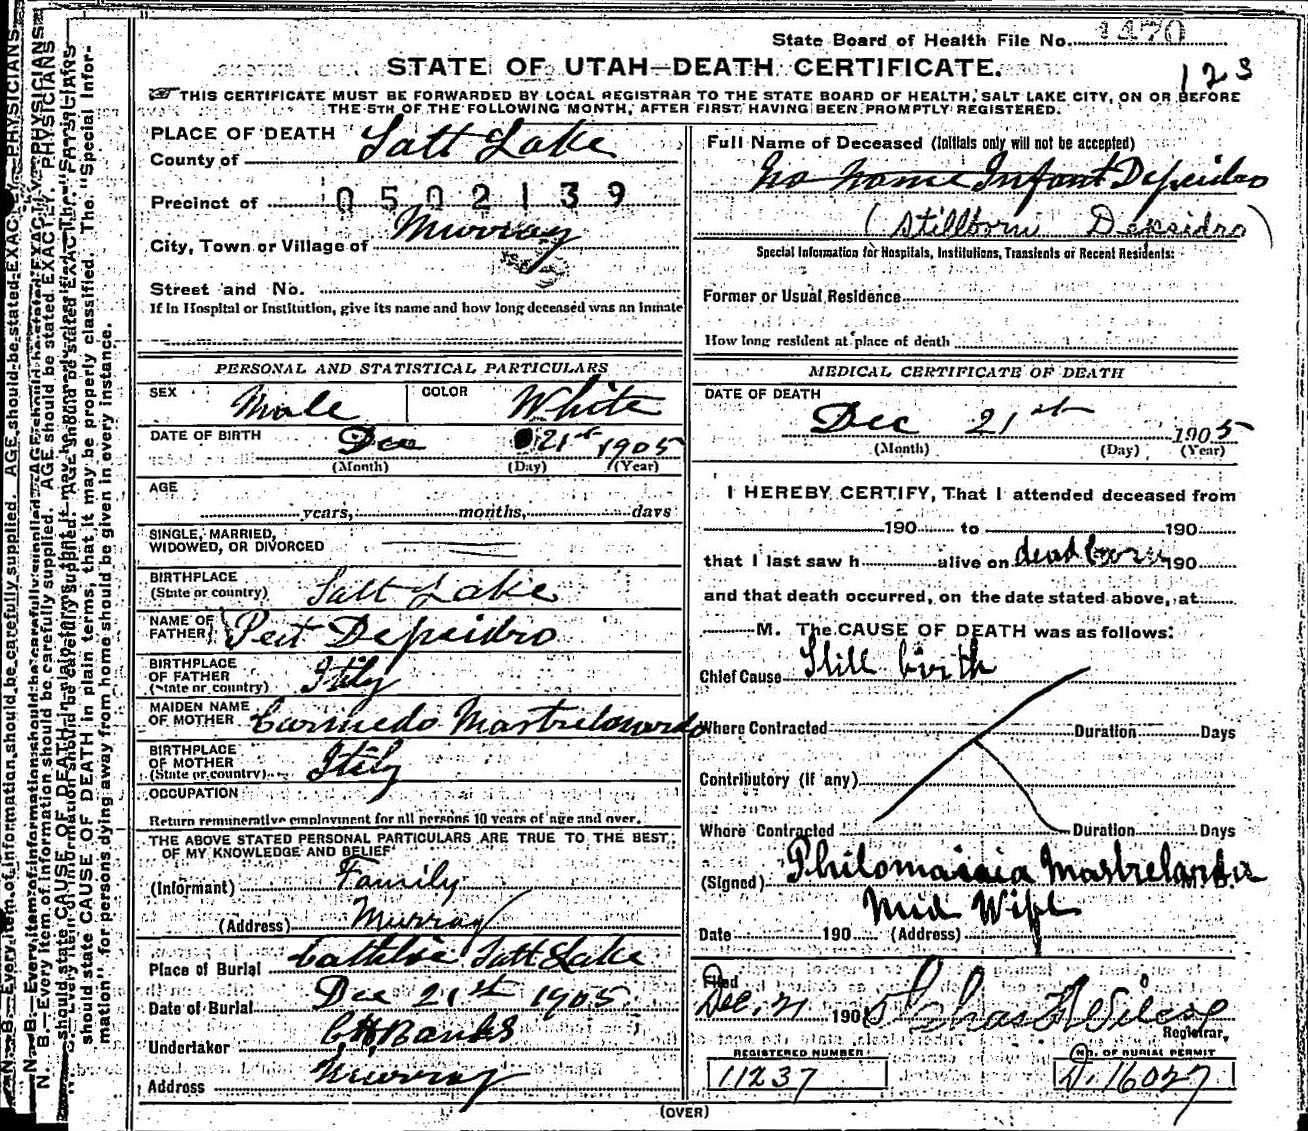 State Board of Health File No. 1470
STATE OF UTAH—DEATH CERTIFICATE.
123
THIS CERTIFICATE MUST BE FORWARDED BY LOCAL REGISTRAR TO THE STATE BOARD OF HEALTH, SALT LAKE CITY, ON OR BEFORE
THE 5TH OF THE FOLLOWING MONTH, AFTER FIRST HAVING BEEN PROMPTLY REGISTERED.
PLACE OF DEATH
County of Salt Lake
Precinct of 0502139
City, Town or Village of Murray
Street and No.
If in Hospital or Institution, give its name and how long deceased was an inmate
PERSONAL AND STATISTICAL PARTICULARS
SEX Male COLOR White
DATE OF BIRTH Dec 21st 1905
(Month) (Day) (Year)
AGE
years, months, days
SINGLE, MARRIED,
WIDOWED, OR DIVORCED
BIRTHPLACE
(State or country) Salt Lake
NAME OF
FATHER Peit Depsidro
BIRTHPLACE
OF FATHER
(State or country) Itily
MAIDEN NAME
OF MOTHER Carmedo Mastrelonardo
BIRTHPLACE
OF MOTHER
(State or country) Itily
OCCUPATION
Return remunerative employment for all persons 10 years of age and over.
THE ABOVE STATED PERSONAL PARTICULARS ARE TRUE TO THE BEST
OF MY KNOWLEDGE AND BELIEF
(Informant) Family
(Address) Murray
Place of Burial Salt Lake
Date of Burial Dec 21st 1905
Undertaker C.H. Banks
Address Murray
Full Name of Deceased (Initials only will not be accepted)
No Name Infant Depsidro
(Stillborn Depsidro)
Special Information for Hospitals, Institutions, Transients or Recent Residents:
Former or Usual Residence
How long resident at place of death
MEDICAL CERTIFICATE OF DEATH
DATE OF DEATH
Dec 21st 1905
(Month) (Day) (Year)
I HEREBY CERTIFY, That I attended deceased from
190 to 190
that I last saw h alive on dead born 190
and that death occurred, on the date stated above, at
M. The CAUSE OF DEATH was as follows:
Chief Cause Still birth
Where Contracted Duration Days
Contributory (if any)
Where Contracted Duration Days
(Signed) Mastrelardia
Mid Wife
Date 190 (Address)
Filed
Dec. 21 190
Registrar,
REGISTERED NUMBER
11237
No. OF BURIAL PERMIT
D. 16027
(OVER)
N. B.—Every item of information should be carefully supplied. AGE should be stated EXACTLY. PHYSICIANS
should state CAUSE OF DEATH in plain terms, that it may be properly classified. The "Special Infor-
mation" for persons dying away from home should be given in every instance.